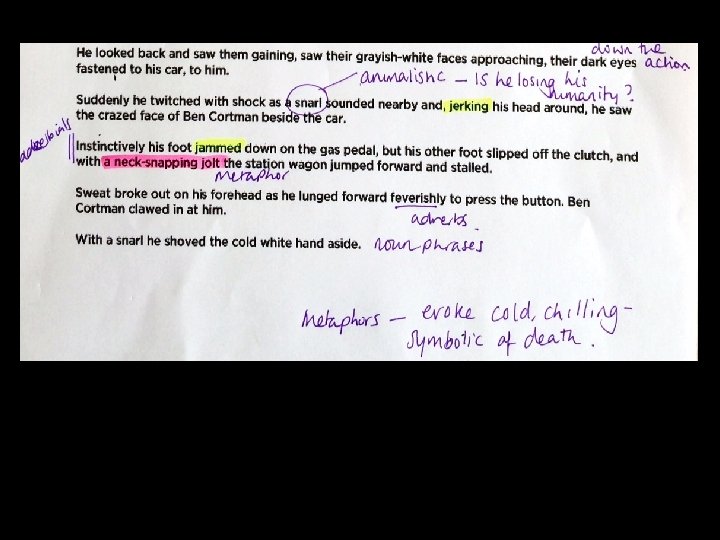 down the
He looked back and saw them gaining, saw their grayish-white faces approaching, their dark eyes action
fastened to his car, to him.
animalistic – Is he losing his
humanity?
Suddenly he twitched with shock as a snarl sounded nearby and, jerking his head around, he saw
the crazed face of Ben Cortman beside the car.
Instinctively his foot jammed down on the gas pedal, but his other foot slipped off the clutch, and
with a neck-snapping jolt the station wagon jumped forward and stalled.
metaphor
Sweat broke out on his forehead as he lunged forward feverishly to press the button. Ben
Cortman clawed in at him.
adverbs.
With a snarl he shoved the cold white hand aside. noun phrases
Metaphors – evoke cold, chilling –
symbolic of death.